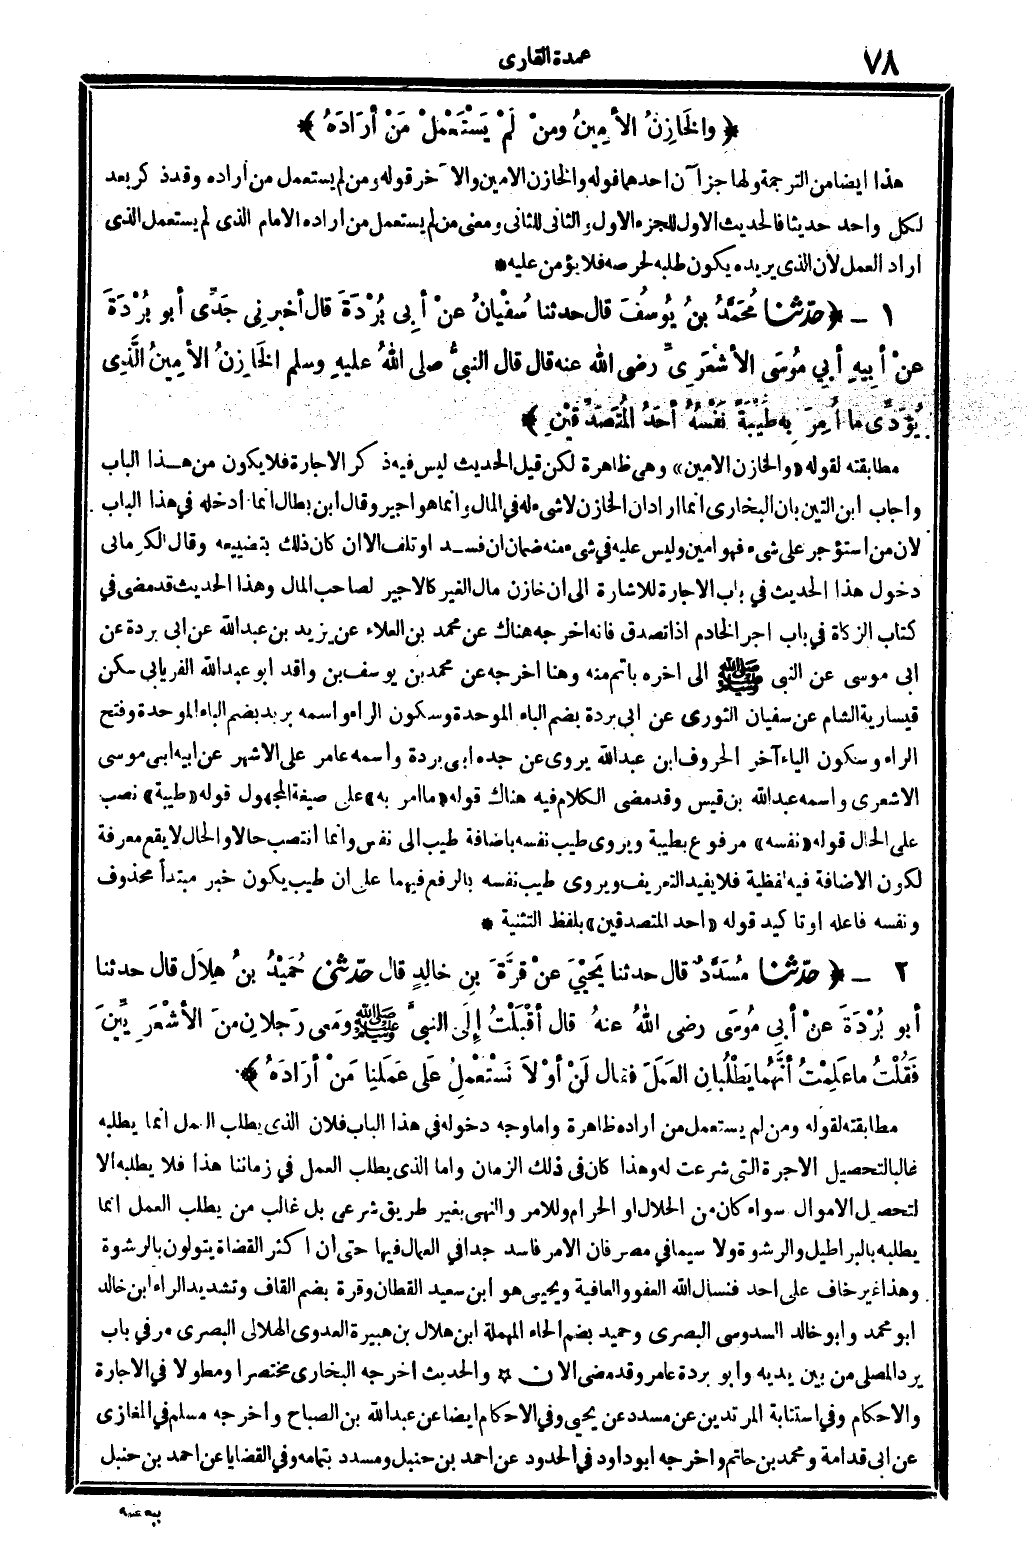 ٧٨
عمدة القارى
﴿ والخَازِنُ الأمِينُ ومنْ لَمْ يَسْتَعْمِلْ مَنْ أرَادَهُ ﴾
هذا ايضا من الترجمة ولها جزآن احدهما قوله والخازن الامين والآخر قوله ومن لم يستعمل من أراده وقد ذكر بعد
لكل واحد حديثا فالحديث الاول للجزء الاول والثانى للثانى ومعنى من لم يستعمل من اراده الامام الذى لم يستعمل الذى
اراد العمل لأن الذى يريده يكون طلبه لحرصه فلا يؤمن عليه *
١ ــ ﴿ حدَّثنا مُحَمَّدُ بنُ يُوسُفَ قال حدثنا سُفْيانُ عنْ أبِى بُرْدَةَ قال أخبرنِي جَدِّى أبو بُرْدَةَ
عنْ أبِيهِ أبِي مُوسَى الأشْعَرِىِّ رضى اللهُ عنه قال قال النبىُّ صلى اللهُ عليهِ وسلم الخَازِنُ الأمِينُ الَّذِى
يُؤَدِّى ما أُمِرَ بِهِ طَيِّبَةً نَفْسُهُ أحَدُ المُتَصَدِّقَيْنِ ﴾
مطابقته لقوله «والخازن الامين» وهى ظاهرة لكن قيل الحديث ليس فيه ذكر الاجارة فلا يكون من هـذا الباب
واجاب ابن التين بان البخارى انما اراد ان الخازن لا شىء له فى المال وانما هو اجير وقال ابن بطال انما ادخله فى هذا الباب
لان من استؤجر على شىء فهو امين وليس عليه فى شىء منه ضمان ان فسـد او تلف الا ان كان ذلك بتضييعه وقال الكرمانى
دخول هذا الحديث في باب الاجارة للاشارة الى ان خازن مال الغير كالاجير لصاحب المال وهذا الحديث قد مضى فى
كتاب الزكاة في باب اجر الخادم اذا تصدق فانه اخرجه هناك عن محمد بن العلاء عن يزيد بن عبدالله عن ابى بردة عن
ابى موسى عن النبى ﷺ الى اخره باتم منه وهنا اخرجه عن محمد بن يوسف بن واقد ابو عبدالله الفريابي سكن
قيسارية الشام عن سفيان الثورى عن ابي بردة بضم الباء الموحدة وسكون الراء واسمه بريد بضم الباء الموحدة وفتح
الراء وسكون الياء آخر الحروف ابن عبدالله يروى عن جده ابى بردة واسمه عامر على الاشهر عن ابيه ابى موسى
الاشعرى واسمه عبدالله بن قيس وقد مضى الكلام فيه هناك قوله «ما امر به» على صيغة المجهول قوله «طيبة» نصب
على الحال قوله «نفسه» مرفوع بطيبة ويروى طيب نفسه باضافة طيب الى نفس وانما انتصب حالا والحال لا يقع معرفة
لكون الاضافة فيه لفظية فلا يفيد التعريف ويروى طيب نفسه بالرفع فيهما على ان طيب يكون خبر مبتدأ محذوف
ونفسه فاعله او تاكيد قوله «احد المتصدقين» بلفظ التثنية *
٢ ــ ﴿ حدَّثنا مُسَدَّدٌ قال حدثنا يَحْيَىٰ عنْ قرَّةَ بنِ خالِدٍ قال حدَّثنى حُمَيْدُ بنُ هِلاَل قال حدثنا
أبو بُرْدَةَ عنْ أبِي مُوسَى رضى اللهُ عنهُ قال أقْبَلْتُ إلَى النبىِّ ﷺ ومَعِى رَجلانِ منَ الأشْعَرِيِّينَ
فَقُلْتُ ما عَلِمْتُ أنَّهُما يَطْلُبانِ العَمَلَ فقال لَنْ أوْ لاَ نَسْتَعْمِلُ عَلَى عَمَلِنا مَنْ أرَادَهُ ﴾
مطابقته لقوله ومن لم يستعمل من اراده ظاهرة واما وجه دخوله فى هذا الباب فلان الذى يطلب العمل انما يطلبه
غالبا لتحصيل الاجرة التى شرعت له وهذا كان فى ذلك الزمان واما الذى يطلب العمل في زماننا هذا فلا يطلبه الا
لتحصيل الاموال سواء كان من الحلال او الحرام وللامر والنهى بغير طريق شرعى بل غالب من يطلب العمل انما
يطلبه بالبراطيل والرشوة ولا سيما في مصر فان الامر فاسد جدا فى العمال فيها حتى أن اكثر القضاة يتولون بالرشوة
وهذا غير خاف على احد فنسال الله العفو والعافية ويحيى هو ابن سعيد القطان وقرة بضم القاف وتشديد الراء ابن خالد
ابو محمد وابو خالد السدوسى البصرى وحميد بضم الحاء المهملة ابن هلال بن هبيرة العدوى الهلالى البصرى مر في باب
يرد المصلى من بين يديه وابو بردة عامر وقد مضى الان * والحديث اخرجه البخارى مختصرا ومطولا فى الاجارة
والاحكام وفى استتابة المرتدين عن مسدد عن يحيى وفى الاحكام ايضا عن عبدالله بن الصباح واخرجه مسلم فى المغازى
عن ابى قدامة ومحمد بن حاتم واخرجه ابو داود فى الحدود عن احمد بن حنبل ومسدد بتمامه وفى القضايا عن احمد بن حنبل